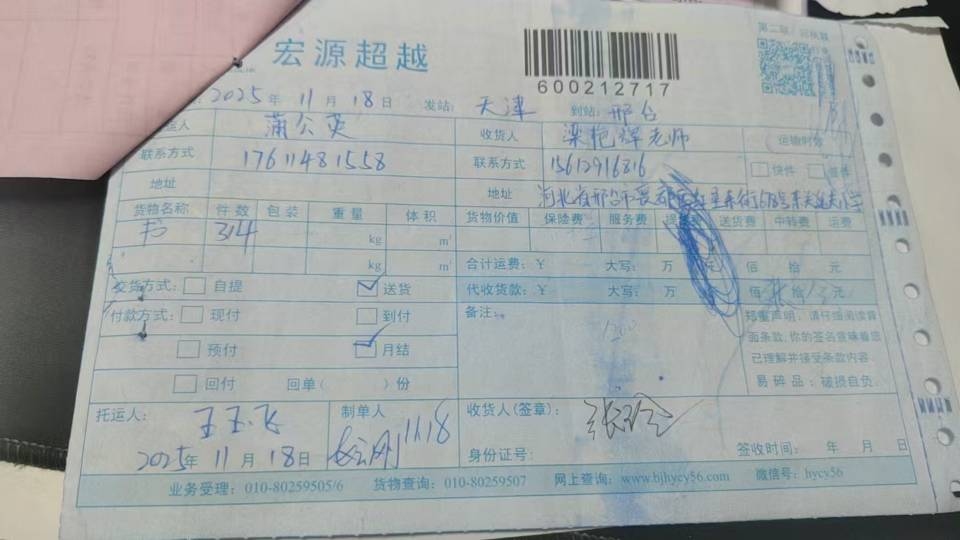 宏源超越
600212717
2025年 11月 18日 发站: 天津 到站: 邢台
蒲公英 收货人 梁艳辉老师 运输时效
联系方式 17611481558 联系方式 15612916816 快件 普件
地址 地址 河北省邢台市
货物名称 件数 包装 重量 体积 货物价值 保险费 服务费 送货费 中转费 运费
书 314 kg m³
kg m³ 合计运费: ¥ 大写: 万 佰 拾 元
交货方式: 自提 送货 代收货款: ¥ 大写: 万 佰 拾 元
付款方式: 现付 到付 备注:
郑重声明, 请仔细阅读背
面条款, 你的签名意味着您
预付 月结
已理解并接受条款内容
回付 回单( )份 易碎品: 破损自负
托运人: 王玉飞 制单人 11.18 收货人(签章): 张玲
2025年 11月 18日 身份证号: 签收时间: 年 月 日
业务受理: 010-80259505/6 货物查询: 010-80259507 网上查询: www.bjhycy56.com 微信号: hycy56